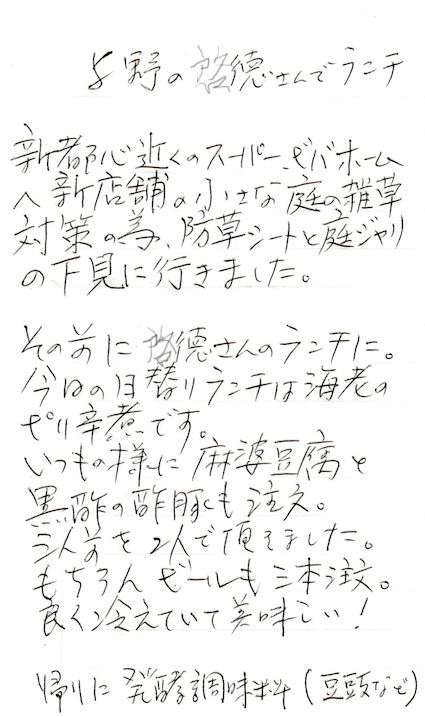 与野の啓徳さんでランチ
新都心近くのスーパービバホーム
へ新店舗の小さな庭の雑草
対策の為、防草シートと庭ジャリ
の下見に行きました。
その前に啓徳さんのランチに。
今日の日替りランチは海老の
ピリ辛煮です。
いつもの様に麻婆豆腐と
黒酢の酢豚も注文。
三人前を2人で頂きました。
もちろんビールも三本注文。
良く冷えていて美味しい!
帰りに発酵調味料(豆豉など)